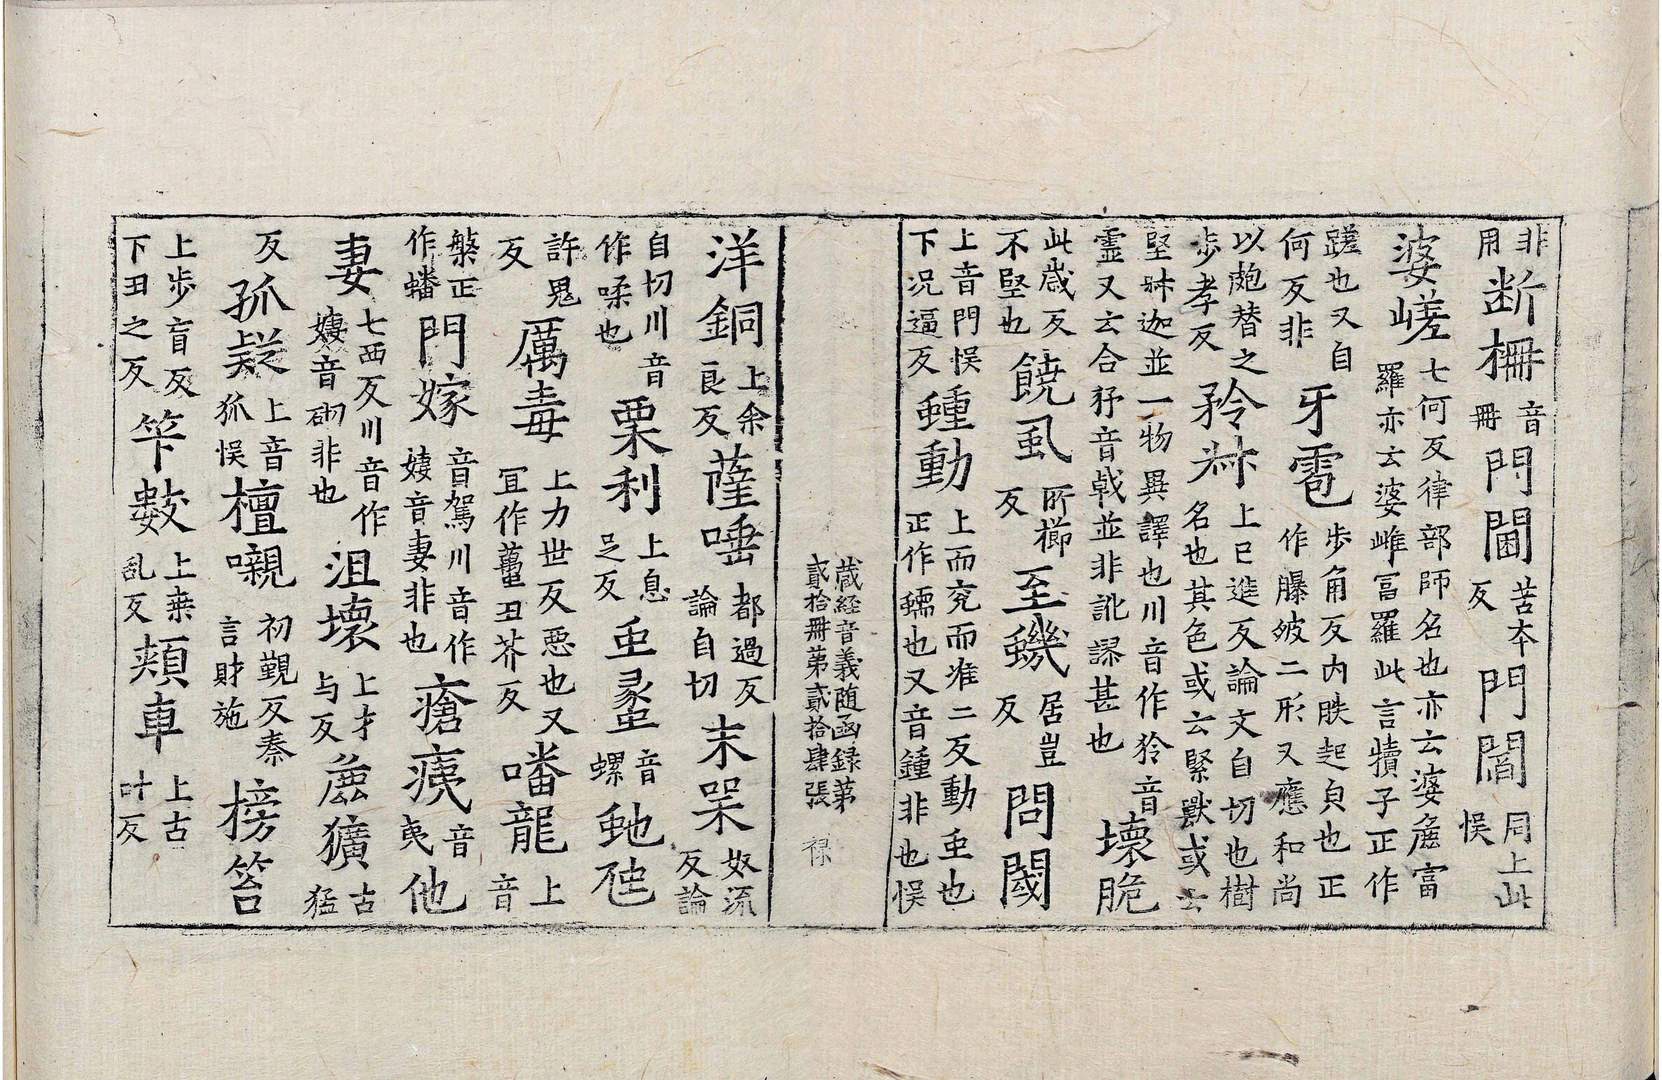 非用断柵音冊門閫苦本反門閫同上此悮
婆嵯七何反律部師名也亦云婆麁富羅亦云婆雌富羅此言犢子正作
蹉也又自何反非牙雹步角反内胅起皃也正作𦢊皰二形又應和尚
以皰替之步孝反矝𣏟上巨進反論文自切也樹名也其色或云緊獸或云
堅𣏟迦並一物異譯也川音作狑音靈又云合㺩音㦸並非訛謬甚也壞脆
此歲反不堅也饒虱所櫛反至蟣居豈反問閾
上音門悮下況逼反蝩動上而兖而准二反動虫也正作蝡也又音鍾非也悮
藏經音義随函録第貳拾冊第貳拾肆張 禄
洋銅上余良反薩唾都過反論自切耒罞奴流反論
自切川音作㖻也栗利上息足反虫䗬音螺虵虺
許鬼反厲毒上力世反惡也又冝作蠆丑芥反噃龍上音
槃正作蟠門嫁音駕川音作㜈音妻非也瘡痍音夷他
妻七西反川音作㜈音砌非也沮壞上才与反麁獷古猛
反孤疑上音狐悮檀嚫初覲反秦言財施榜笞
上步盲反下丑之反笇數上桒乱反頬車上古叶反